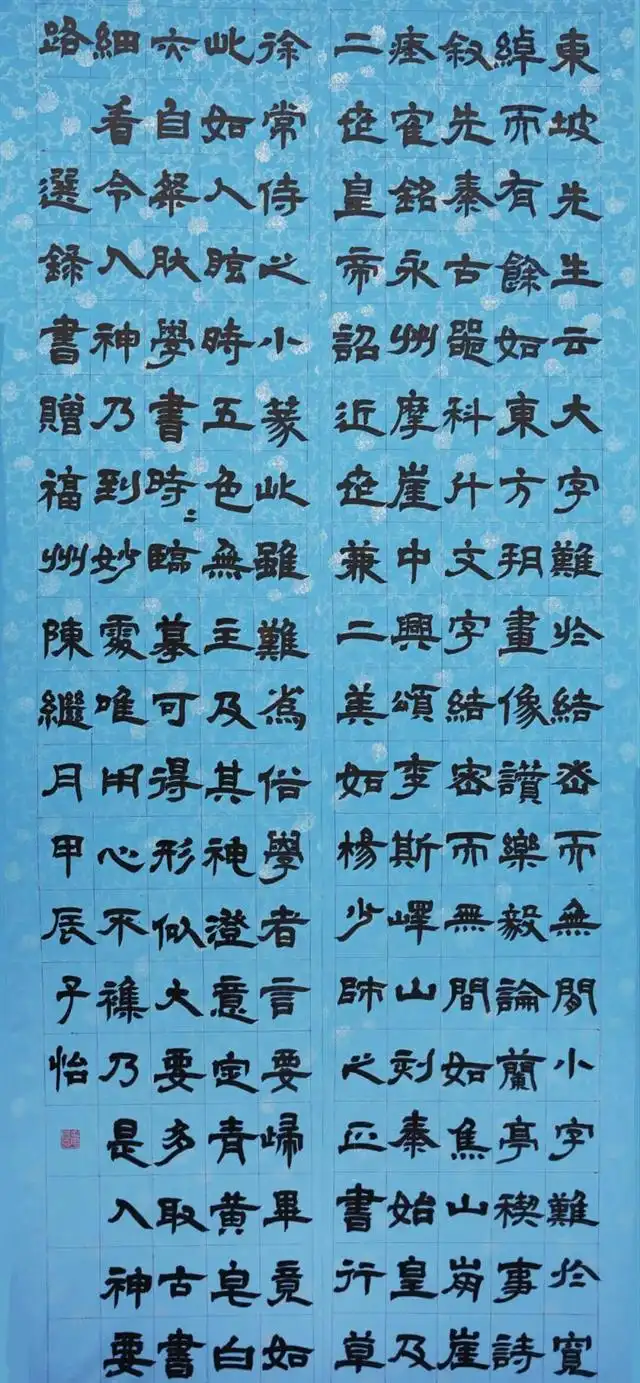 東坡先生云大字難於結密而無間小字難於寬
綽而有餘如東方朔畫像讚樂毅論蘭亭稧事詩
叙先秦古器科斗文字結密而無間如焦山崩崖
瘞隺銘永州摩崖中興頌李斯嶧山刻秦始皇及
二世皇帝詔近世兼二美如楊少師之正書行草
徐常侍之小篆此雖難為俗學者言要歸畢竟如
此如人眩時五色無主及其神澄意定青黃皂白
亦自粲肰學書時〻臨摹可得形似大要多取古書
細看令入神乃到妙處唯用心不襍乃是入神要
路 選錄書贈福州陳繼月甲辰子怡